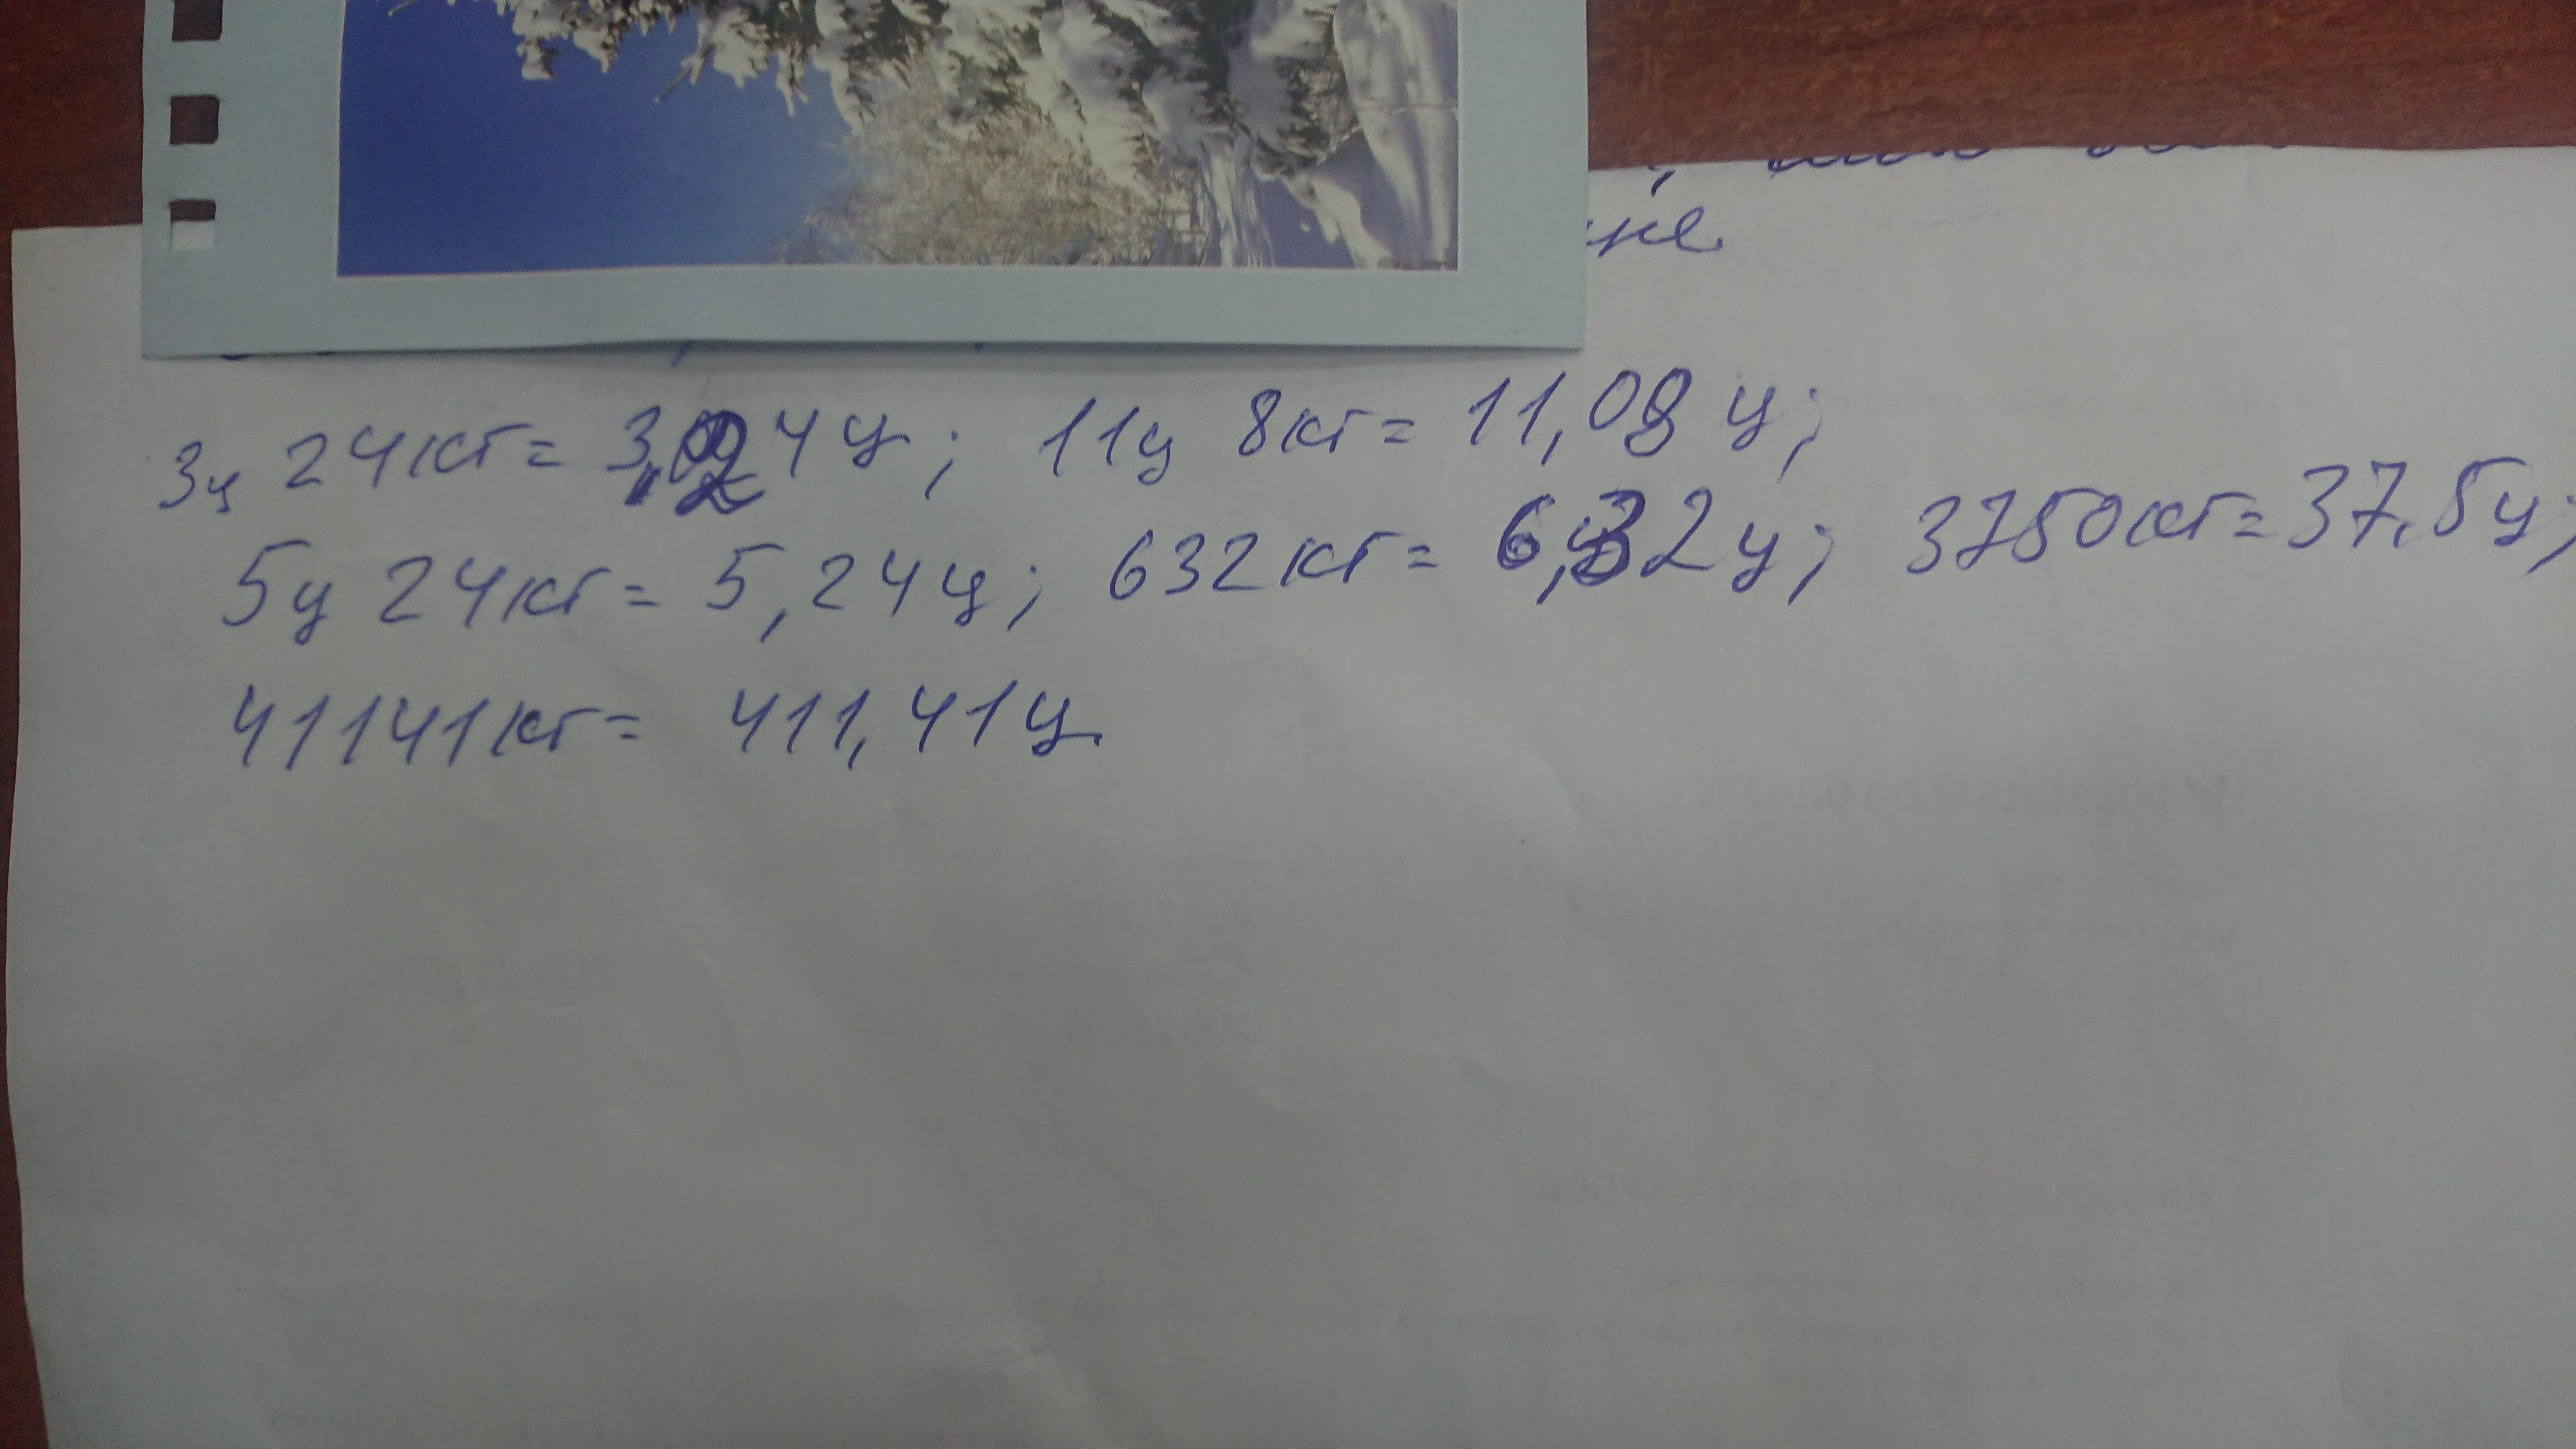 же
3ц 24кг= 3,24ц; 11ц 8кг= 11,08 ц;
5ц 24кг= 5,24ц; 632кг= 6,32ц; 3750кг= 37,5ц;
41141кг= 411,41ц.